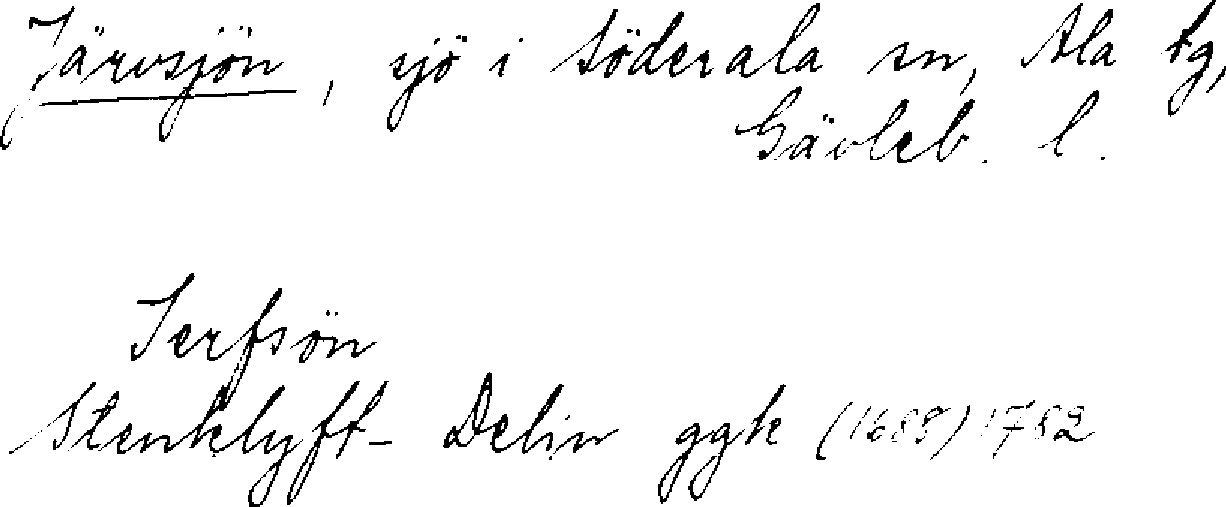 Järvsjön, sjö i Söderala sn, Ala tg,
Gävleb. l.
Jerfsön
Stenklyft- Delin ggk (1689) 1782